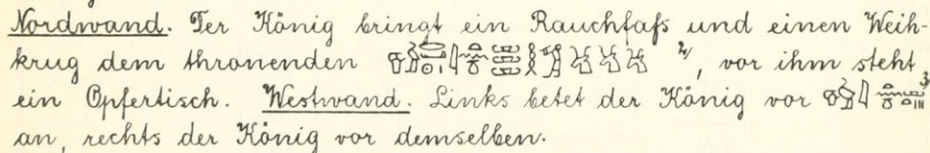 Nordwand. Der König bringt ein Rauchfaß und einen Weih-
krug dem thronenden 2), vor ihm steht
ein Opfertisch. Westwand. Links betet der König vor 3)
an, rechts der König vor demselben.